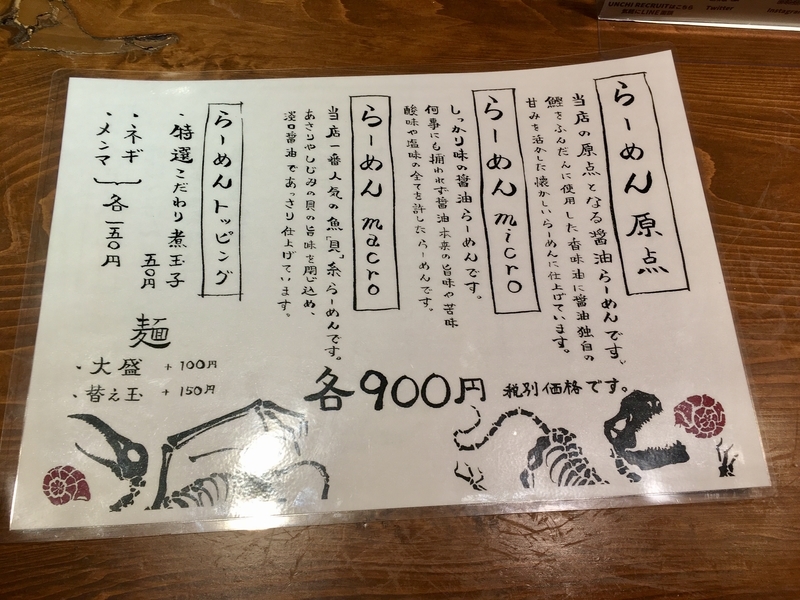 らーめん 原点
当店の原点となる醤油らーめんです。
鰹をふんだんに使用した香味油に醤油独自の
甘みを活かした懐かしいらーめんに仕上げています。
らーめん micro
しっかり味の醤油らーめんです。
何事にも捕われず醤油本来の旨味や苦味
酸味や塩味の全てを許したらーめんです。
らーめん macro
当店一番人気の魚「貝」系らーめんです。
あさりやしじみの貝の旨味を閉じ込め、
淡口醤油であっさり仕上げています。
らーめんトッピング
・特選こだわり煮玉子
五〇円
・ネギ
・メンマ
各一五〇円
麺
・大盛 +100円
・替え玉 +150円
各900円 税別価格です。
UNCHI RECRUITはこちら
Twitter